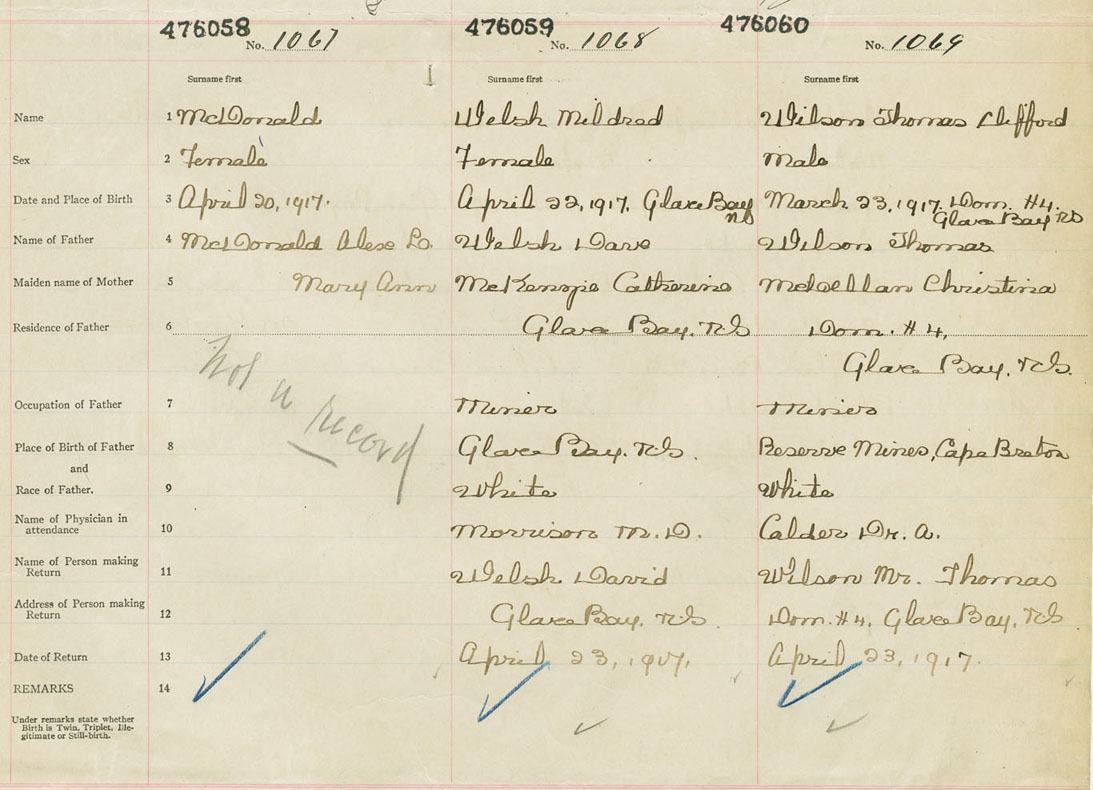 476058 476059 476060
No. 1067 No. 1068 No. 1069
Surname first Surname first Surname first
Name 1 McDonald Welsh Mildred Wilson Thomas Clifford
Sex 2 Female Female Male
Date and Place of Birth 3 April 20, 1917. April 22, 1917. Glace Bay March 23, 1917. Dom. #4.
NS Glace Bay NS
Name of Father 4 McDonald Alex Lo. Welsh Dave Wilson Thomas
Maiden name of Mother 5 Mary Ann McKenzie Catherine McLellan Christina
Residence of Father 6 Glace Bay. N.S Dom. #4,
Glace Bay. N.S.
Not a record
Occupation of Father 7 Miner Miner
Place of Birth of Father 8 Glace Bay. N.S. Reserve Mines, Cape Breton
and
Race of Father. 9 White White
Name of Physician in
attendance 10 Morrison M.D. Calder Dr. A.
Name of Person making
Return 11 Welsh David Wilson Mr. Thomas
Address of Person making
Return 12 Glace Bay. N.S Dom. #4, Glace Bay, N.S
Date of Return 13 April 23, 1917. April 23, 1917.
REMARKS 14
Under remarks state whether
Birth is Twin, Triplet, Ille-
gitimate or Still-birth.